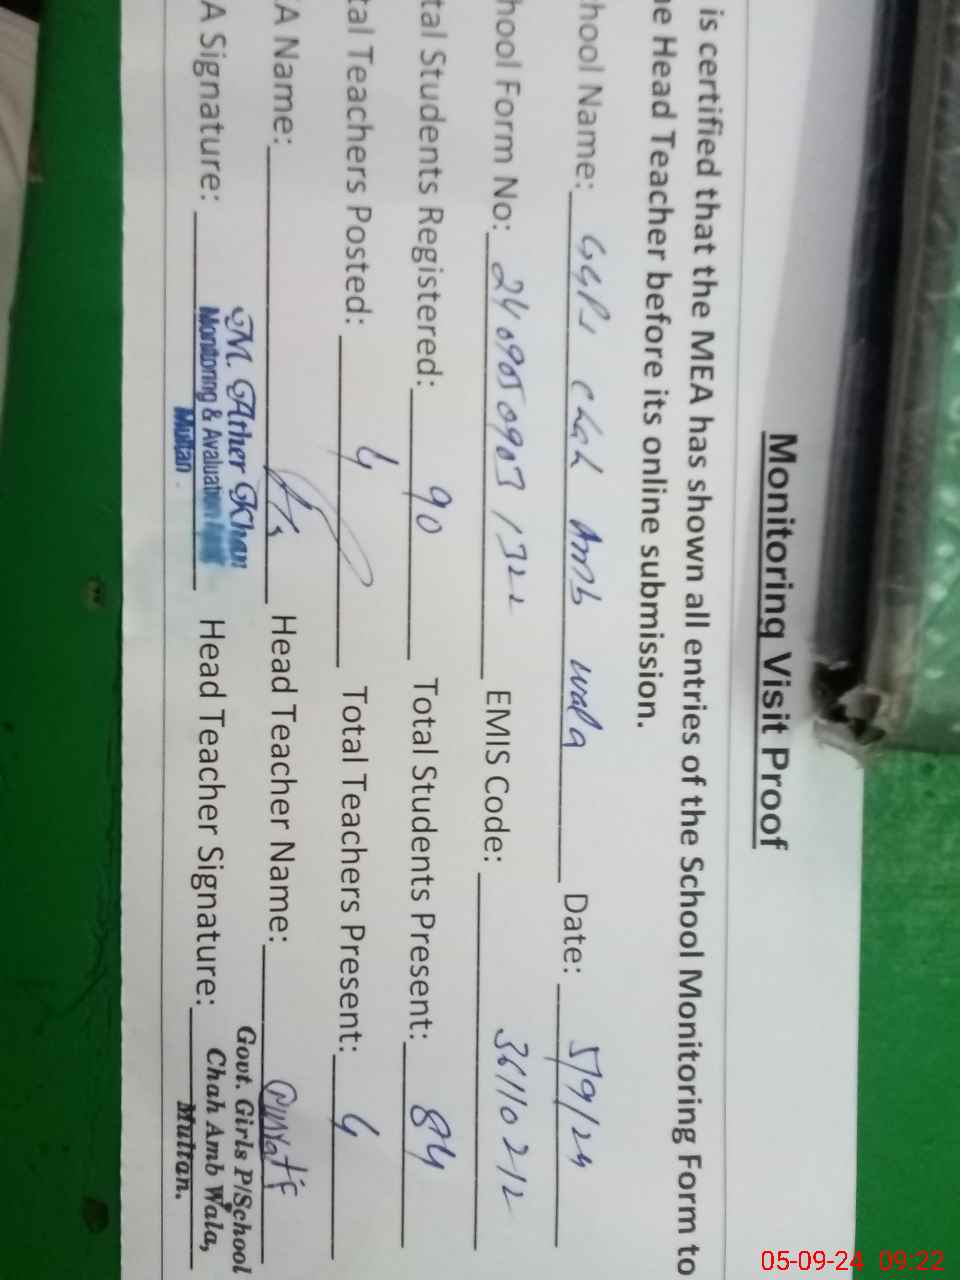 Monitoring Visit Proof
is certified that the MEA has shown all entries of the School Monitoring Form to
e Head Teacher before its online submission.
hool Name: GGPS chah Amb wala Date: 5/9/24
hool Form No: 24090509031322 EMIS Code: 36110212
tal Students Registered: 90 Total Students Present: 84
tal Teachers Posted: 4 Total Teachers Present: 4
A Name: Head Teacher Name:
A Signature: Head Teacher Signature:
M. Ather Khan
Monitoring & Evaluation
Multan.
Govt. Girls P/School
Chah Amb Wala,
Multan.
05-09-24 09:22